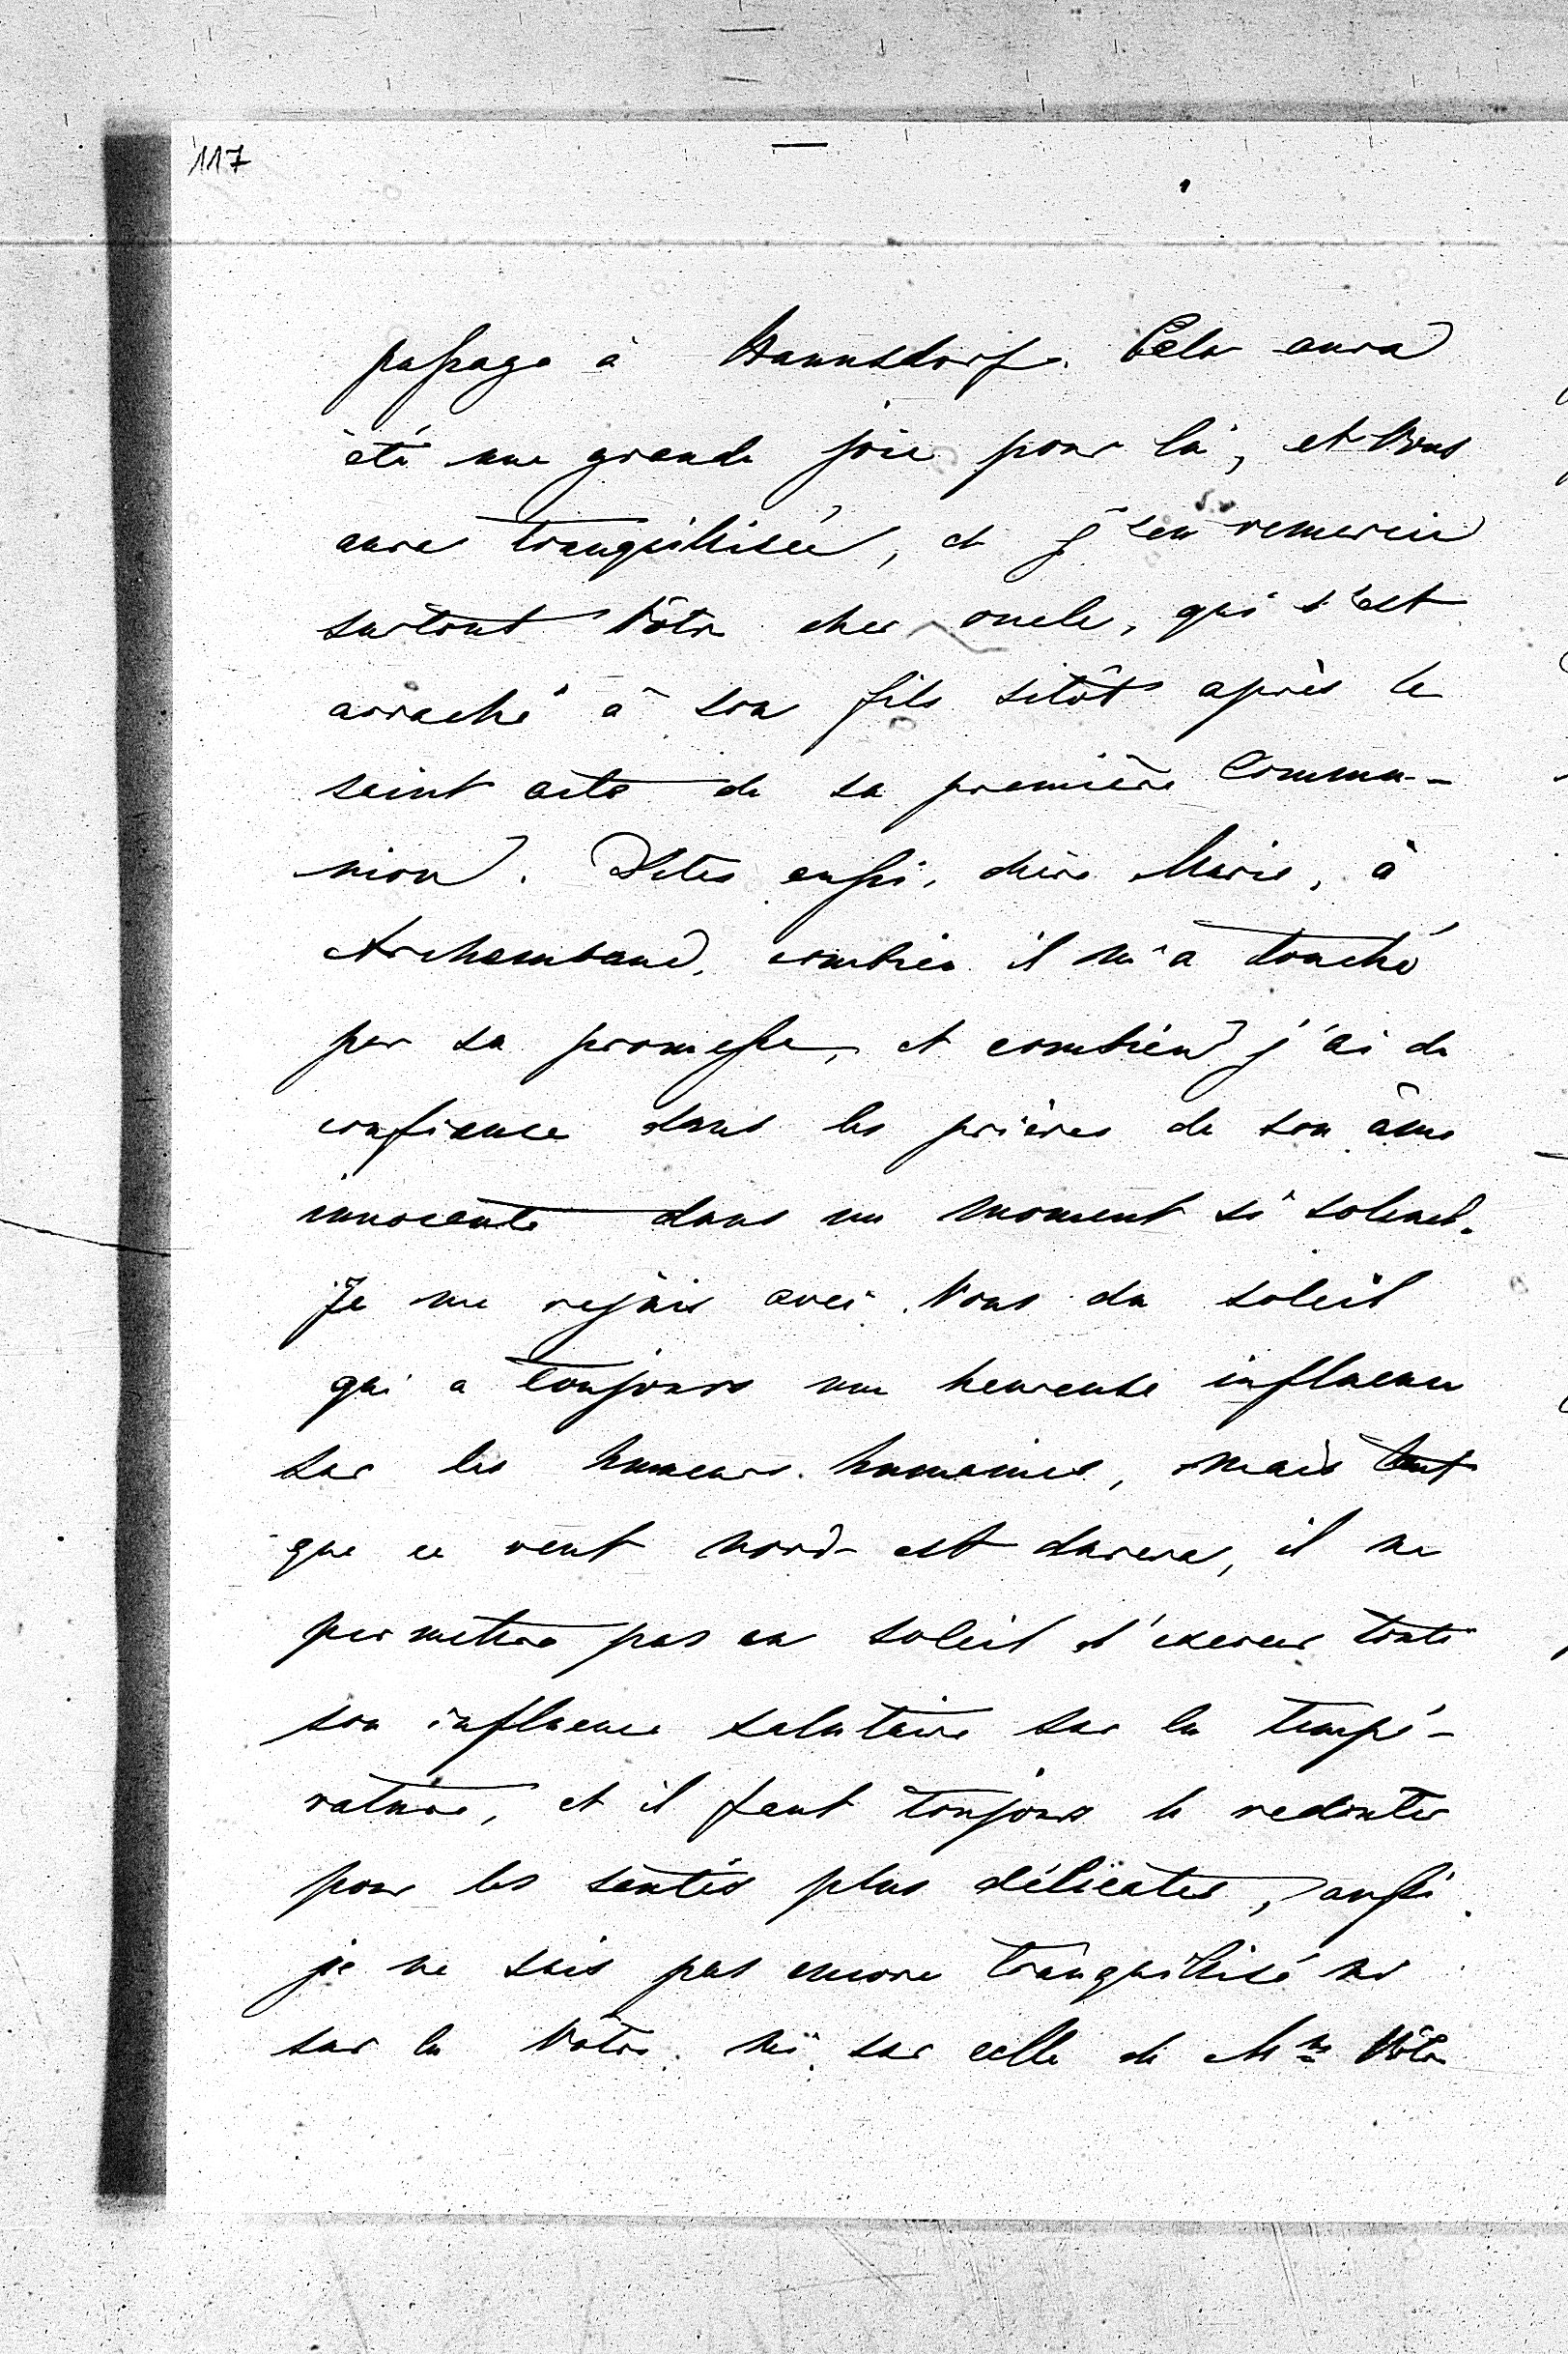 117
passage à Hannsdorf. Cela aura
été une grande joie pour lui, et Vous
aura tranquillisée, et j'en remercie
surtout Vôtre cher oncle, qui s'est
arraché à son fils sitôt après le
saint acte de sa première Commu-
nion. Dites aussi, chère Marie, à
Archambaud, combien il m'a touché
par sa promesse, et combien j'ai de
confiance dans les prières de son âme
innocente dans un moment si solennel.
Je me rejouis avec Vous du soleil
qui a toujours une heureuse influence
sur les humeurs humaines, mais tant
que ce vent nord-est durera, il ne
permettra pas au soleil d'exercer toute
son influence salutaire sur la tempé-
rature, et il faut toujours le redouter
pour les santés plus délicates, aussi
je ne suis pas encore tranquillisé ni
sur la Votre ni sur celle de Mme Vôtre